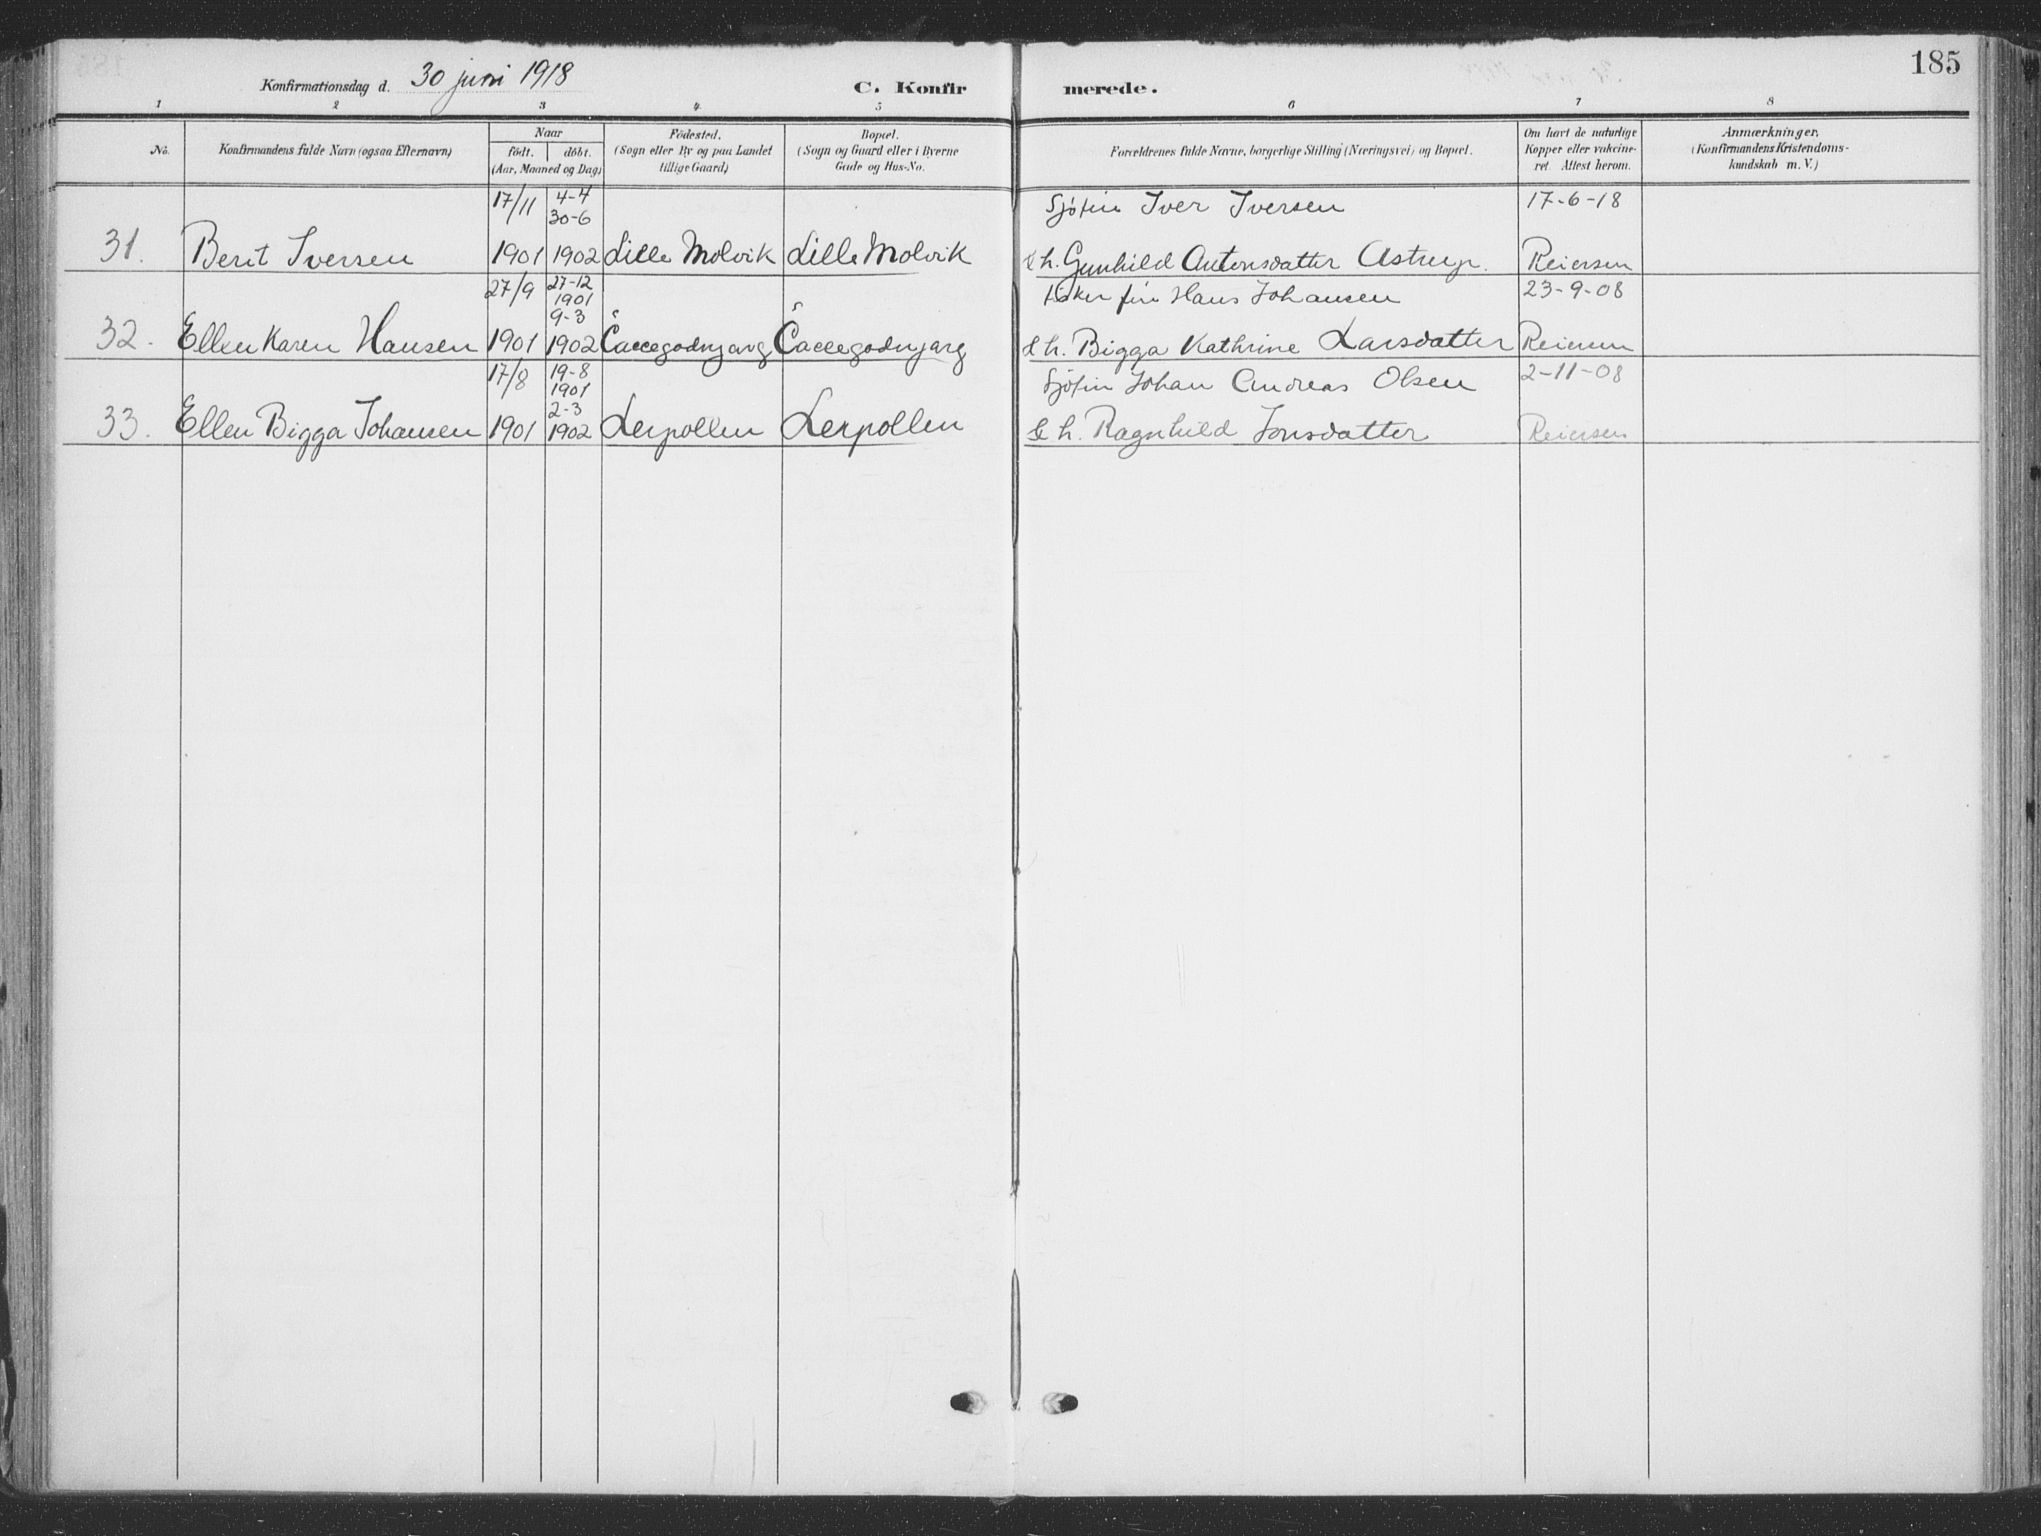 185
Konfirmationsdag d. 30 juni 1918 C. Konfirmerede.
1 2 3 4 5 6 7 8
No.
Konfirmandens fulde Navn (ogsaa Efternavn)
Naar
født. | døbt.
(Aar, Maaned og Dag)
Fødested.
(Sogn eller By og paa Landet
tillige Gaard)
Bopæl.
(Sogn og Gaard eller i Byerne
Gade og Hus-No.
Forældrenes fulde Navne, borgerlige Stilling (Næringsvei) og Bopæl.
Om havt de naturlige
Kopper eller vakcine-
ret. Attest herom.
Anmærkninger.
(Konfirmandens Kristendoms-
kundskab m. V.)
17/11 4-4 Sjøfin Iver Iversen 17-6-18
30-6
31. Berit Iversen 1901 1902 Lille Molvik Lille Molvik & h. Gunhild Antonsdatter Astrup. Reiersen
27/9 27-12 fin Hans Johansen 23-9-08
1901
9-3
32. Ellen Karen Hansen 1901 1902 Čaccegodnjarg Čaccegodnjarg & h. Bigga Kathrine Larsdatter Reiersen
17/8 19-8 Sjøfin Johan Andreas Olsen 2-11-08
1901
2-3
33. Ellen Bigga Johansen 1901 1902 Lerpollen Lerpollen & h. Ragnhild Jonsdatter Reiersen